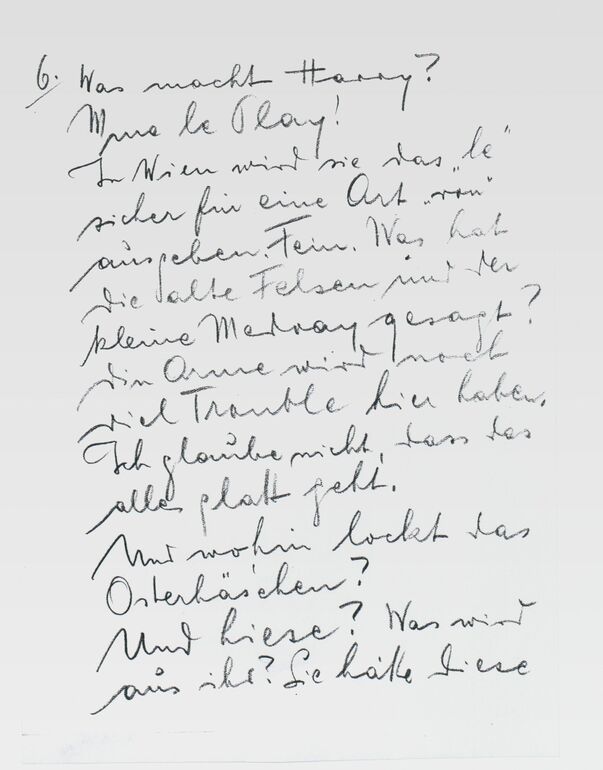 6. Was macht Harry?
Mme le Play!
In Wien wird sie das „le"
sicher für eine Art „von"
ausgeben. Fein. Was hat
die alte Felsen und der
kleine Medvay gesagt?
Die Arme wird noch
viel Trouble hier haben.
Ich glaube nicht, dass das
alles glatt geht.
Und wohin lockt das
Osterhäschen?
Und hiese? Was wird
aus ihr? Sie hätte diese